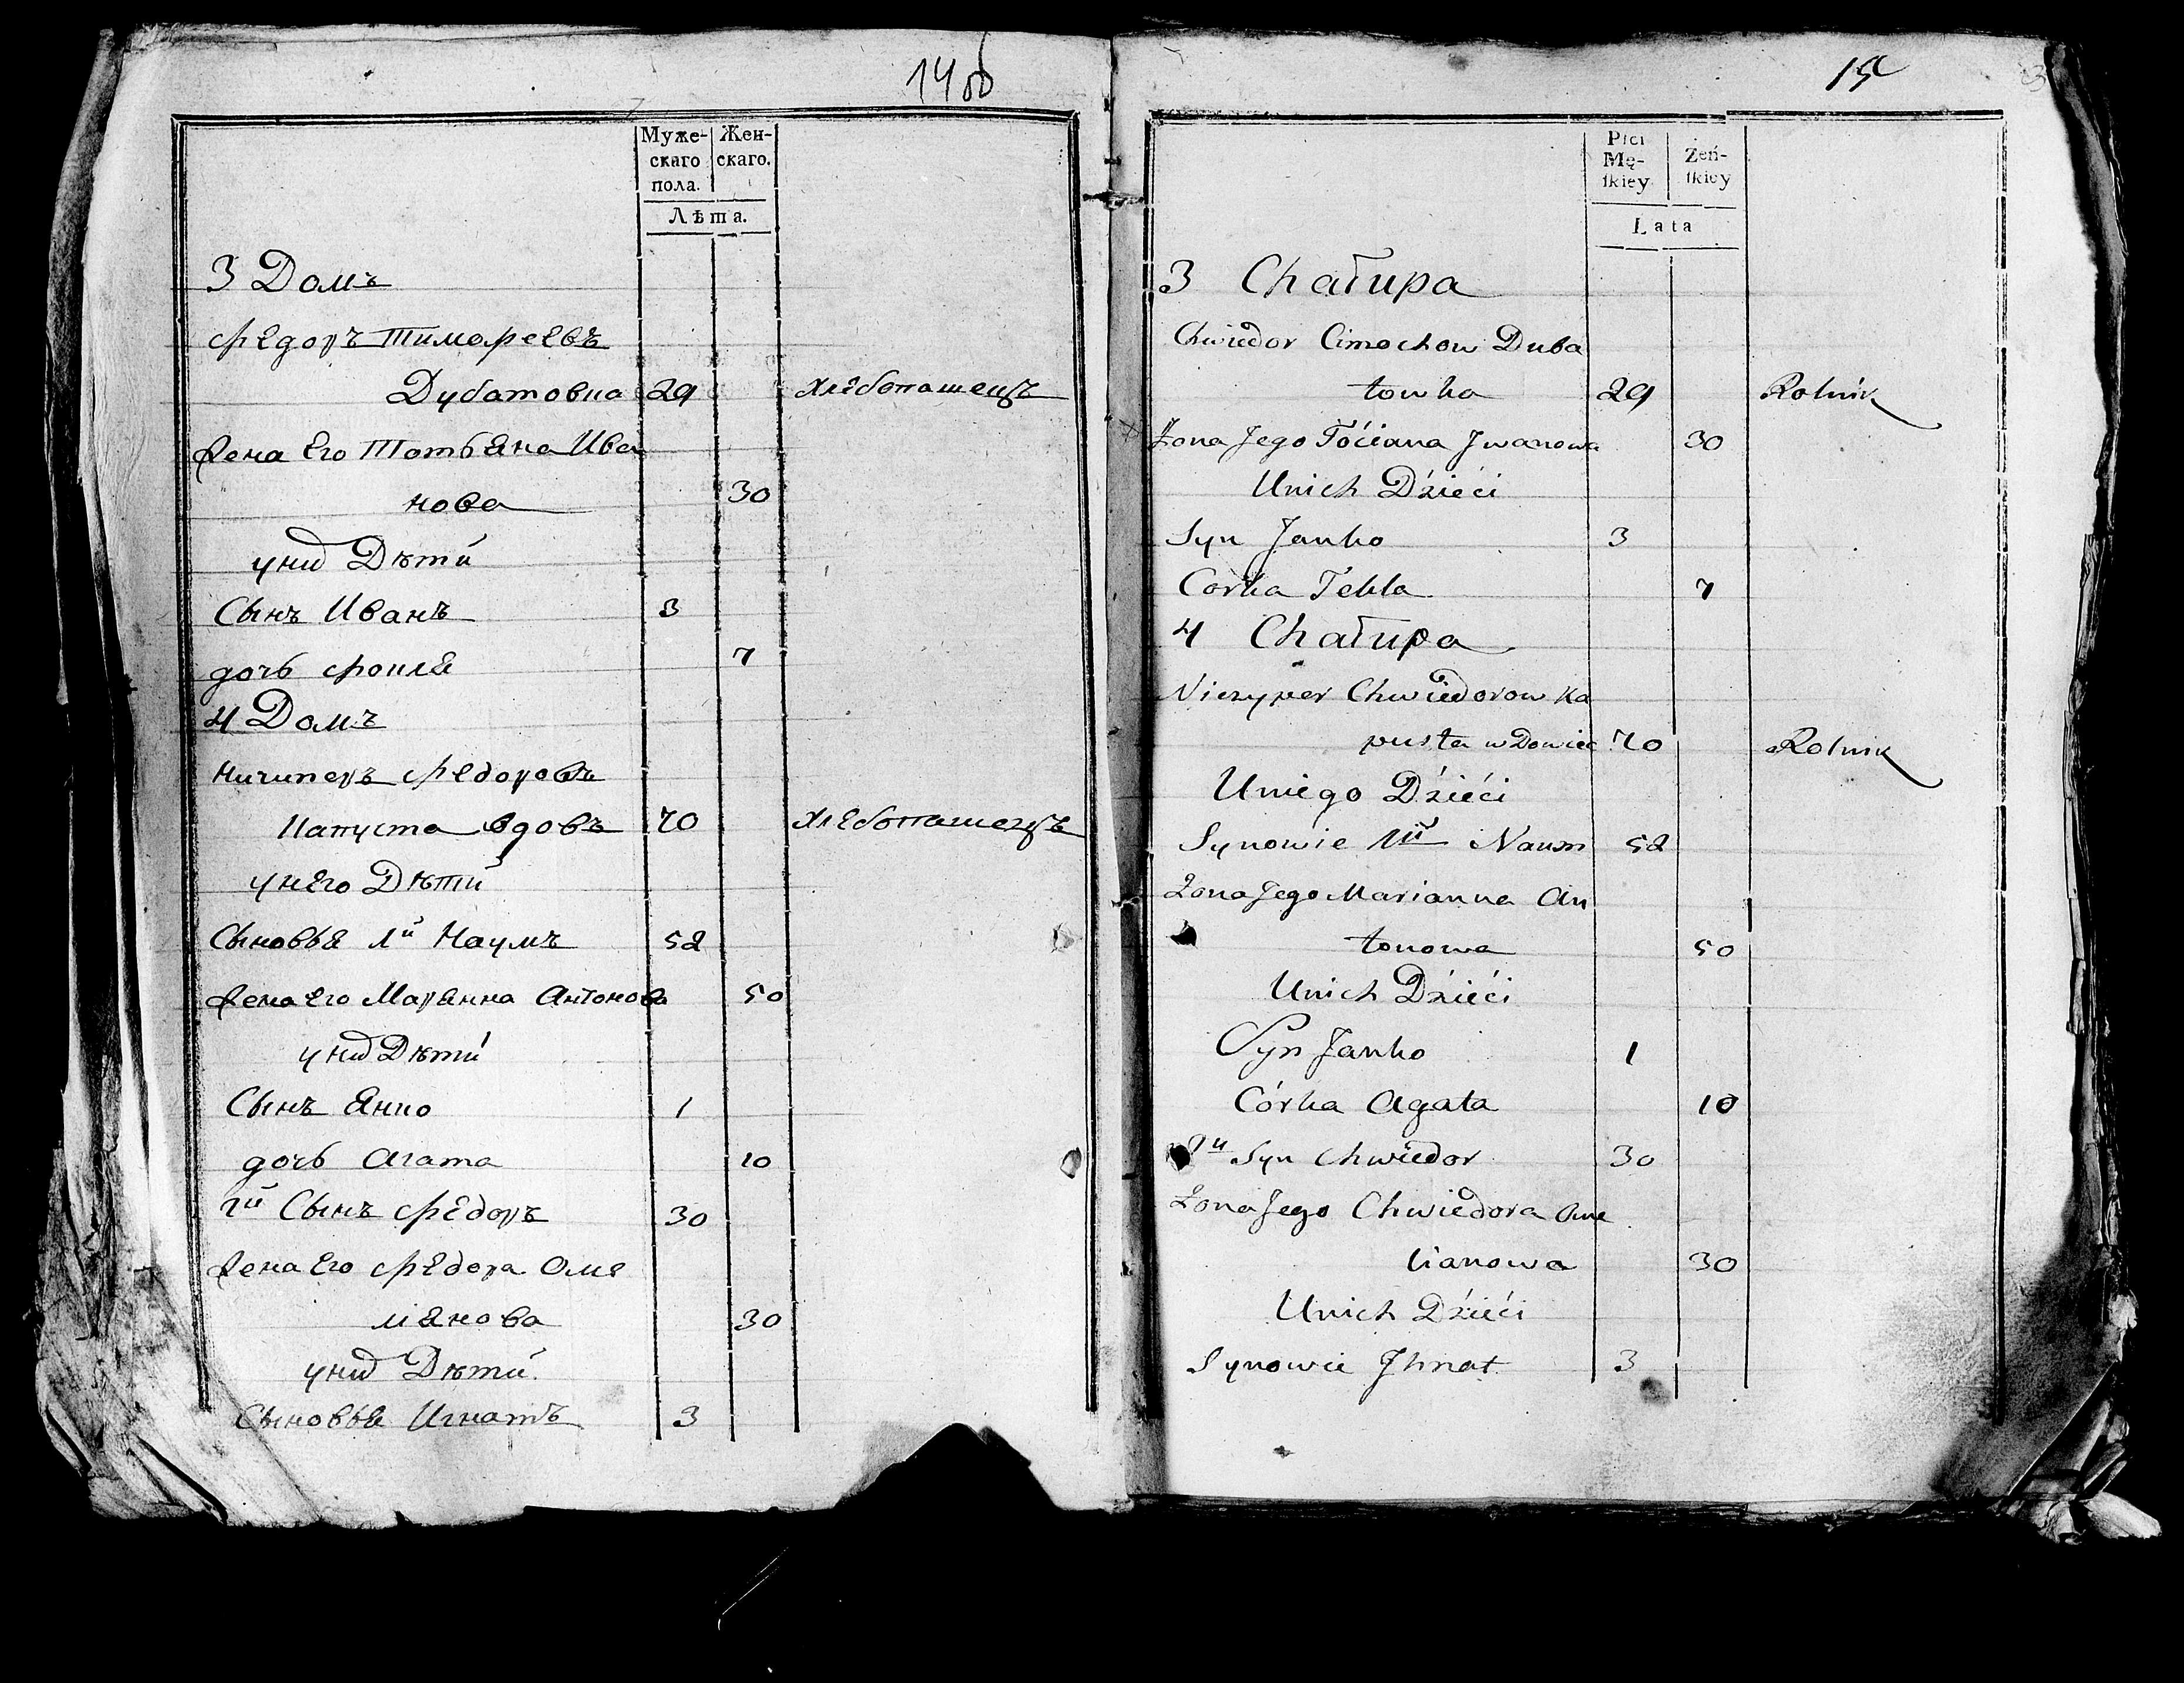 14об
Муже-
скаго
пола.
Жен-
скаго.
Лѣта.
3 Домъ
Ѳедоръ Тимоѳеевъ
Дубатовка 29 Хлебопашецъ
Жена Его Татьяна Ива
нова 30
у них Дѣти
Сынъ Иванъ 3
дочь 7
4 Домъ
Ничиперъ Федоровъ
Капуста вдовъ 70 Хлебопашецъ
у него Дѣти
Сыновья 1й Наумъ 52
Жена Его Марянна Антонова 50
у них Дѣти
Сынъ Янко 1
дочь Агата 10
2й Сынъ Федоръ 30
Жена Его Федора Оме
лянова 30
у них Дѣти
Сыновья Игнатъ 3
15
Płci
Mę-
ſkiey
Żeń-
ſkiey
Lata
3 Chałupa
Chwiedor Cimochow Duba
towka 29 Rolnik
Żona Jego Tóciana Jwanowa 30
Unich Dźieći
Syn Janko 3
Corka Tekla 7
4 Chałupa
Niczyper Chwiedorow Ka
pusta wDowiec 70 Rolnik
Uniego Dźiéći
Synowie 1й Naum 52
Żona Jego Marianna An
tonowa 50
Unich Dźiéći
Syn Janko 1
Córka Agata 10
2й Syn Chwiedor 30
Żona Jego Chwiedora Ome
lianowa 30
Unich Dźiéći
Synowie Jhnat 3